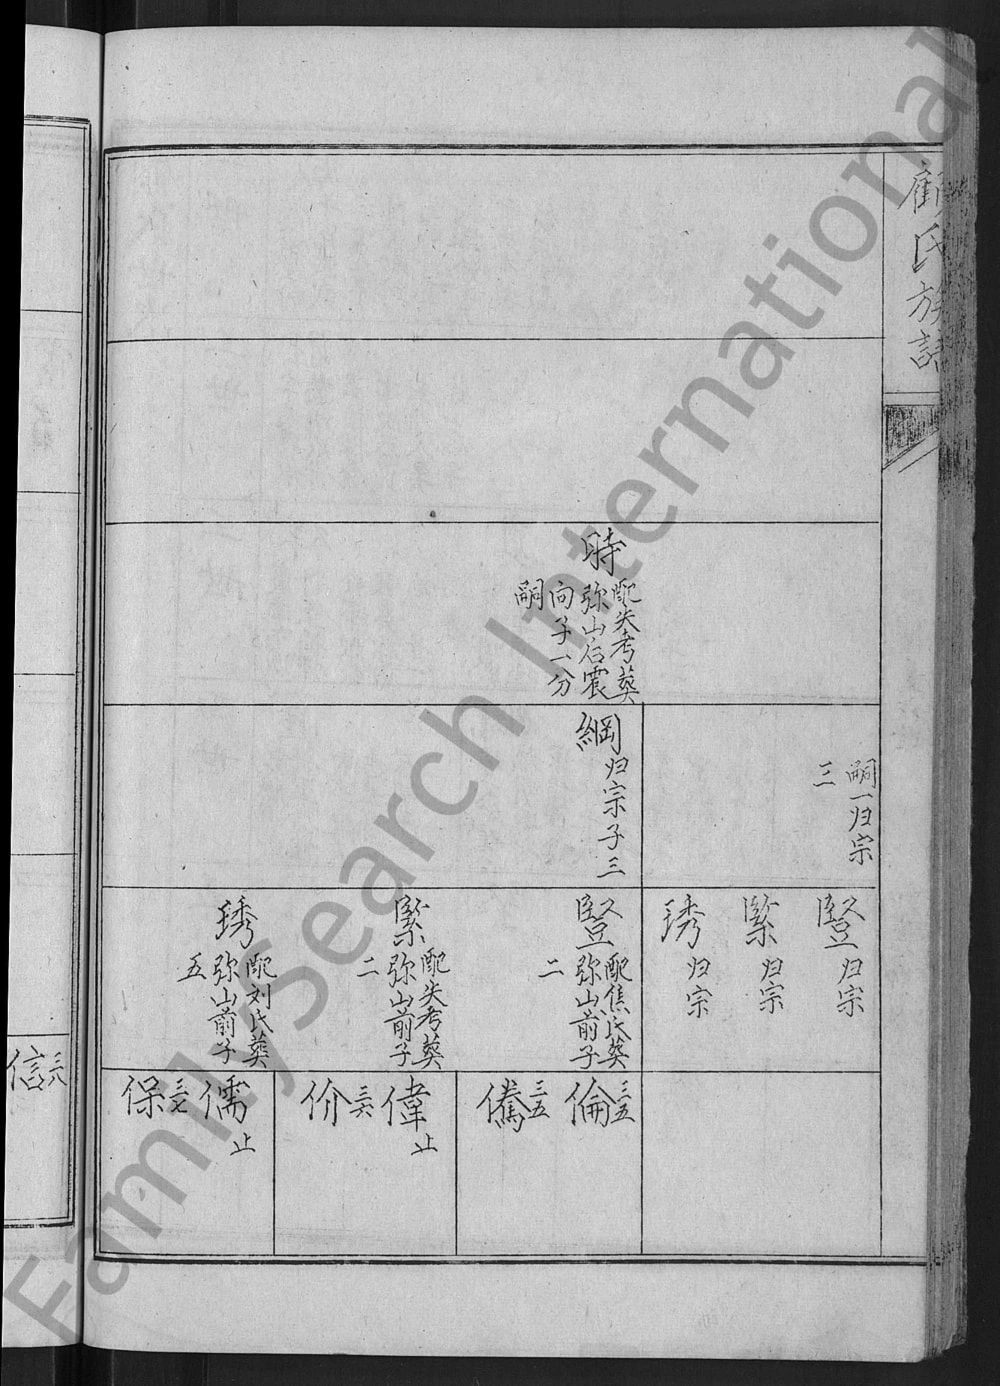 顧氏族譜
時
配失考葬
弥山后震
向子一分
嗣
嗣一归宗
三
綱归宗子三
豎归宗
繁归宗
琇归宗
豎
配焦氏葬
弥山前子
二
繁
配失考葬
弥山前子
二
琇
配刘氏葬
弥山前子
五
倫三五
儯三五
偉止
价三六
儒止
保三七
信三八
FamilySearch International